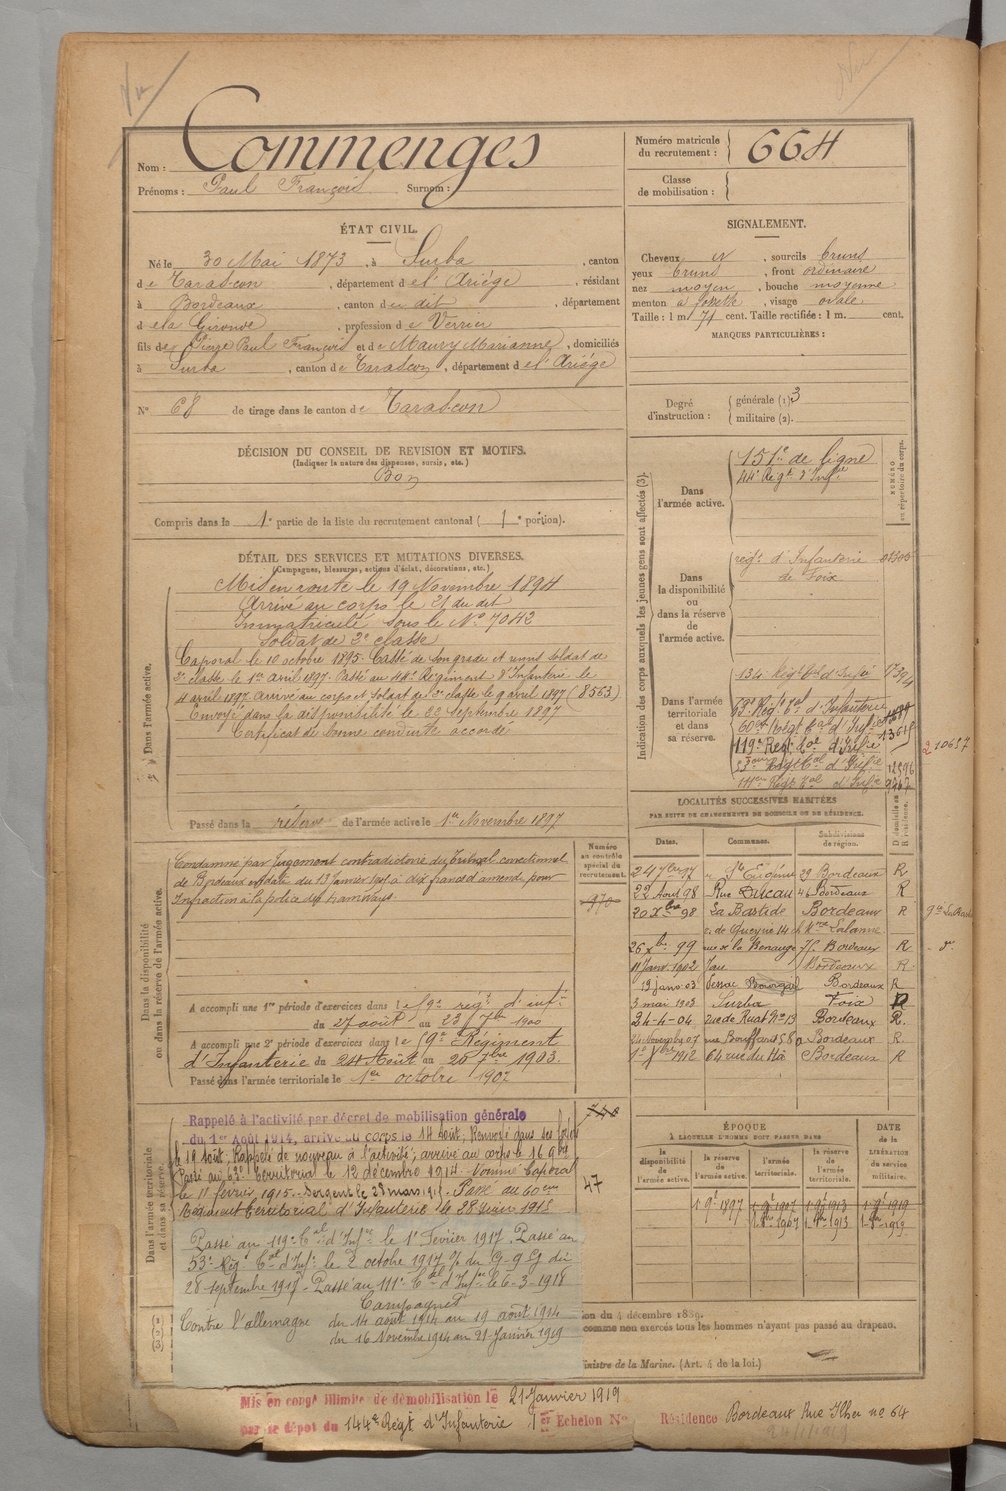 Vu
Vu
Nom : Commenges
Prénoms : Paul François Surnom :
Numéro matricule
du recrutement : 664
Classe
de mobilisation :
ÉTAT CIVIL.
Né le 30 Mai 1873, à Surba, canton
de Tarascon, département de l'Ariège, résidant
à Bordeaux, canton du dit, département
de la Gironde, profession de Verrier
fils de Pierre Paul François et de Maury Marianne, domiciliés
à Surba, canton de Tarascon, département de l'Ariège
N° 68 de tirage dans le canton de Tarascon
SIGNALEMENT.
Cheveux N, sourcils bruns
yeux bruns, front ordinaire
nez moyen, bouche moyenne
menton à fossette, visage ovale
Taille : 1 m 71 cent. Taille rectifiée : 1 m. cent.
MARQUES PARTICULIÈRES :
Degré
d'instruction :
générale (1) 3
militaire (2).
DÉCISION DU CONSEIL DE REVISION ET MOTIFS.
(Indiquer la nature des dispenses, sursis, etc.)
Bon
Compris dans la 1e partie de la liste du recrutement cantonal ( 1e portion).
DÉTAIL DES SERVICES ET MUTATIONS DIVERSES.
(Campagnes, blessures, actions d'éclat, décorations, etc.)
Dans l'armée active.
Mis en route le 19 Novembre 1894
Arrivé au corps le 21 du dit
Immatriculé sous le N° 7042
Soldat de 2e classe
Caporal le 10 octobre 1895. Cassé de son grade et remis soldat de
2e classe le 1er avril 1897. Passé au 44e Régiment d'Infanterie le
4 avril 1897 arrivé au corps et soldat de 2e classe le 9 avril 1897 (8563)
Envoyé dans la disponibilité le 22 septembre 1897
Certificat de bonne conduite accordé
Passé dans la réserve de l'armée active le 1er Novembre 1897
Indication des corps auxquels les jeunes gens sont affectés (3).
NUMÉRO
au répertoire du corps.
Dans
l'armée active.
151e de ligne
44e Régt d'Infie
Dans
la disponibilité
ou
dans la réserve
de
l'armée active.
régt d'Infanterie 01306
de Foix
Dans l'armée
territoriale
et dans
sa réserve.
134e Régt tal d'Infie
63e Régt tal d'Infanterie
60e Régt tal d'Infie 13618
119e Régt tal d'Infie
210657
53ème Régt tal d'Infie 12596
111em Régt tal d'Infie
LOCALITÉS SUCCESSIVES HABITÉES
PAR SUITE DE CHANGEMENTS DE DOMICILE OU DE RÉSIDENCE.
Dates. Communes. Subdivisions de région. D domicile ou R résidence.
24 7bre 97 r. Ste Eugénie 29 Bordeaux R
22 Aout 98 Rue Ducau 46 Bordeaux R
20 Xbre 98 La Bastide Bordeaux R
q. de Queyrie 14 ch Mme Lalanne
26 Xbre 99 rue de la Benauge 76 Bordeaux R
11 Janv 1902 Bordeaux R
19 janv 03 Pessac Bordeaux R
3 mai 1903 Surba Foix R
24-4-04 rue de Ruat No 13 Bordeaux R.
24 Novembre 07 rue Bouffard 58 Bordeaux R
1912 64 rue du Hâ Bordeaux R
Dans la disponibilité
ou dans la réserve de l'armée active.
Numéro
au contrôle
spécial du
recrutement.
970
Condamné par Jugement contradictoire du Tribunal correctionnel
de Bordeaux en date du 13 Janvier 1905 à dix francs d'amende pour
Infraction à la police des tramways
A accompli une 1re période d'exercices dans le 9e régt d'infie
du 27 août au 23 7bre 1900
A accompli une 2e période d'exercices dans le 9e Régiment
d'Infanterie du 24 Août au 20 7bre 1903.
Passé dans l'armée territoriale le 1er octobre 1907
Dans l'armée territoriale
et dans sa réserve.
Rappelé à l'activité par décret de mobilisation générale
du 1er Août 1914, arrivé au corps le 14 août, Renvoyé dans ses foyers
le 19 août, Rappelé de nouveau à l'activité ; arrivé au corps le 16 9bre
Passé au 63e territorial le 12 décembre 1914. Nommé Caporal
le 11 février 1915. Sergent le 28 mars 1915. Passé au 60em
Régiment territorial d'Infanterie le 28 juin 1915
47
Passé au 119e tal d'Infie le 1er Février 1917. Passé au
53e Régt tal d'Inf. le 2 octobre 1917 o/ du G.Q.G. du
28 septembre 1917 - Passé au 111e tal d'Infie le 6-3-1918
Campagnes
Contre l'allemagne du 14 août 1914 au 19 août 1914
du 16 Novembre 1914 au 21 Janvier 1919
ÉPOQUE
À LAQUELLE L'HOMME DOIT PASSER DANS
la disponibilité de l'armée active. la réserve de l'armée active. l'armée territoriale. la réserve de l'armée territoriale.
DATE de la LIBÉRATION du service militaire.
1 9bre 1897 1 9bre 1907 1 9bre 1913 1 9bre 1919
1 8bre 1907 1 8bre 1913 1 8bre 1919
ion du 4 décembre 1889.
comme non exercés tous les hommes n'ayant pas passé au drapeau.
inistre de la Marine. (Art. 4 de la loi.)
Mis en congé illimité de démobilisation le 21 Janvier 1919
par le dépôt du 144e Régt d'Infanterie 1er Echelon No Résidence Bordeaux Rue no 64